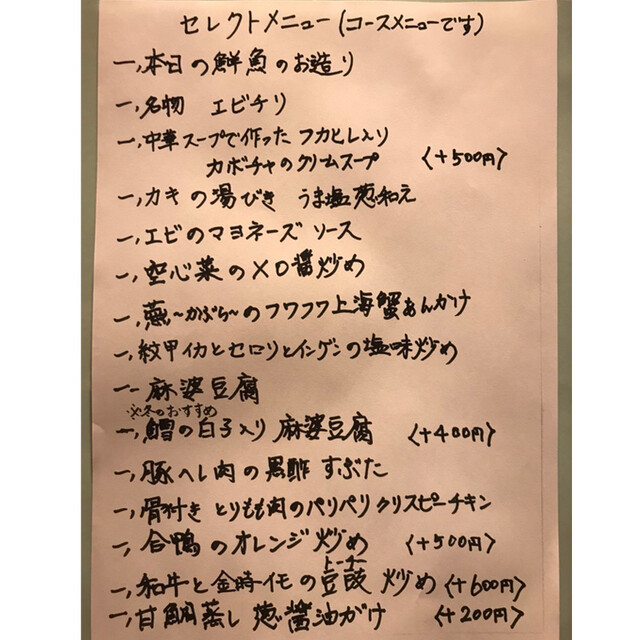 セレクトメニュー(コースメニューです)
一、本日の鮮魚のお造り
一、名物 エビチリ
一、中華スープで作った フカヒレ入り
カボチャのクリームスープ 〈+500円〉
一、カキの湯びき うま塩葱和え
一、エビのマヨネーズ ソース
一、空心菜のXO醤炒め
一、蕪~かぶら~のフワフワ上海蟹あんかけ
一、紋甲イカとセロリとインゲンの塩味炒め
一、麻婆豆腐
※冬のおすすめ
一、鱈の白子入り 麻婆豆腐 〈+400円〉
一、豚ヘレ肉の黒酢 すぶた
一、骨付き とりもも肉のパリパリクリスピーチキン
一、合鴨のオレンジ炒め 〈+500円〉
トーチー
一、和牛と金時イモの豆豉 炒め 〈+600円〉
一、甘鯛蒸し 葱醤油がけ 〈+200円〉